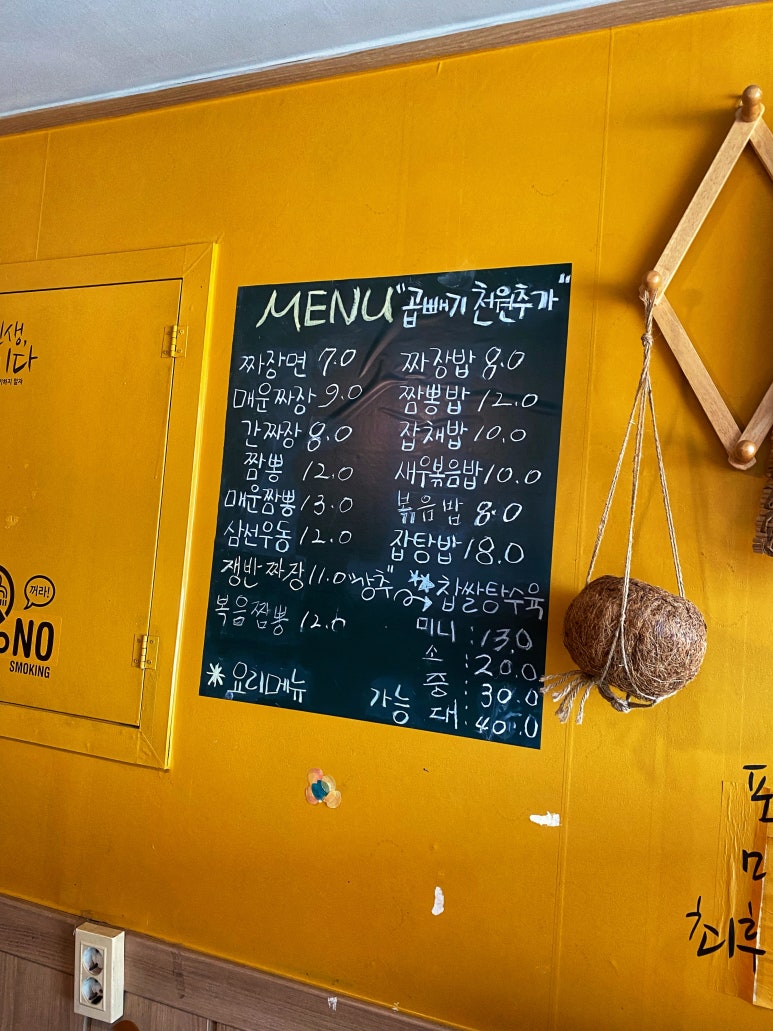 MENU "곱빼기 천원추가"
짜장면 7.0
매운짜장 9.0
간짜장 8.0
짬뽕 12.0
매운짬뽕 13.0
삼선우동 12.0
쟁반짜장 11.0
볶음짬뽕 12.0
*요리메뉴 가능
짜장밥 8.0
짬뽕밥 12.0
잡채밥 10.0
새우볶음밥 10.0
볶음밥 8.0
잡탕밥 18.0
찹쌀탕수육
미니 : 13.0
소 : 20.0
중 : 30.0
대 : 40.0
꺼라!
NO
SMOKING
최후